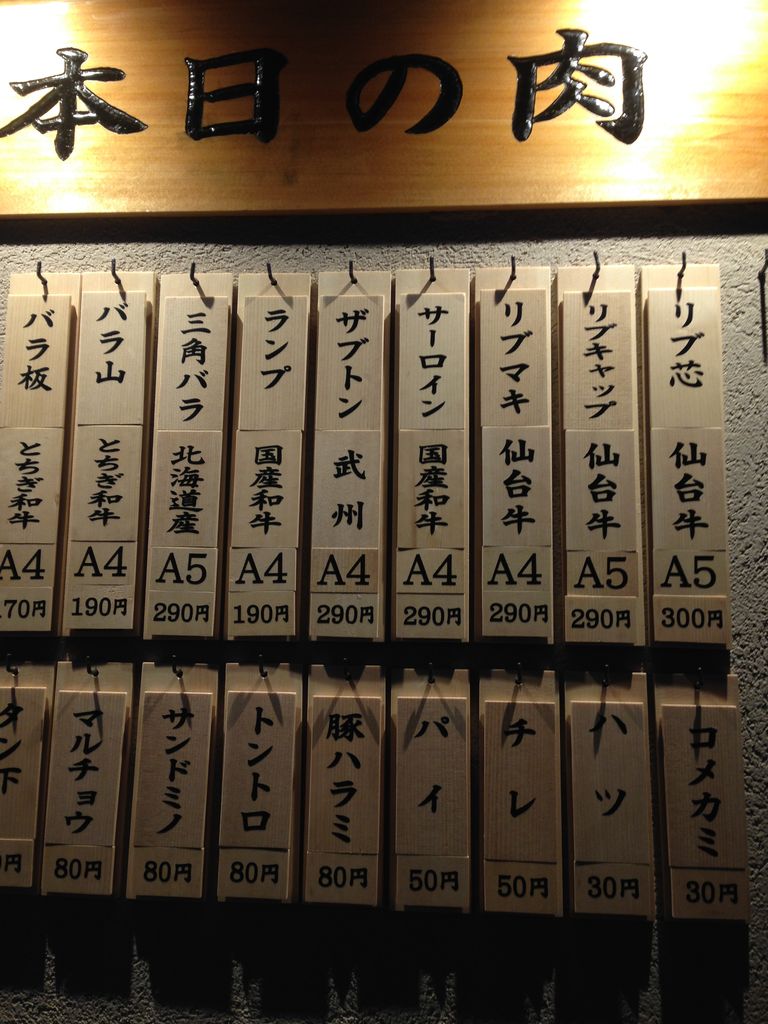 本日の肉
リブ芯
仙台牛
A5
300円
リブキャップ
仙台牛
A5
290円
リブマキ
仙台牛
A4
290円
サーロイン
国産和牛
A4
290円
ザブトン
武州
A4
290円
ランプ
国産和牛
A4
190円
三角バラ
北海道産
A5
290円
バラ山
とちぎ和牛
A4
190円
バラ板
とちぎ和牛
A4
170円
コメカミ
30円
ハツ
30円
チレ
50円
パイ
50円
豚ハラミ
80円
トントロ
80円
サンドミノ
80円
マルチョウ
80円
タン下
円